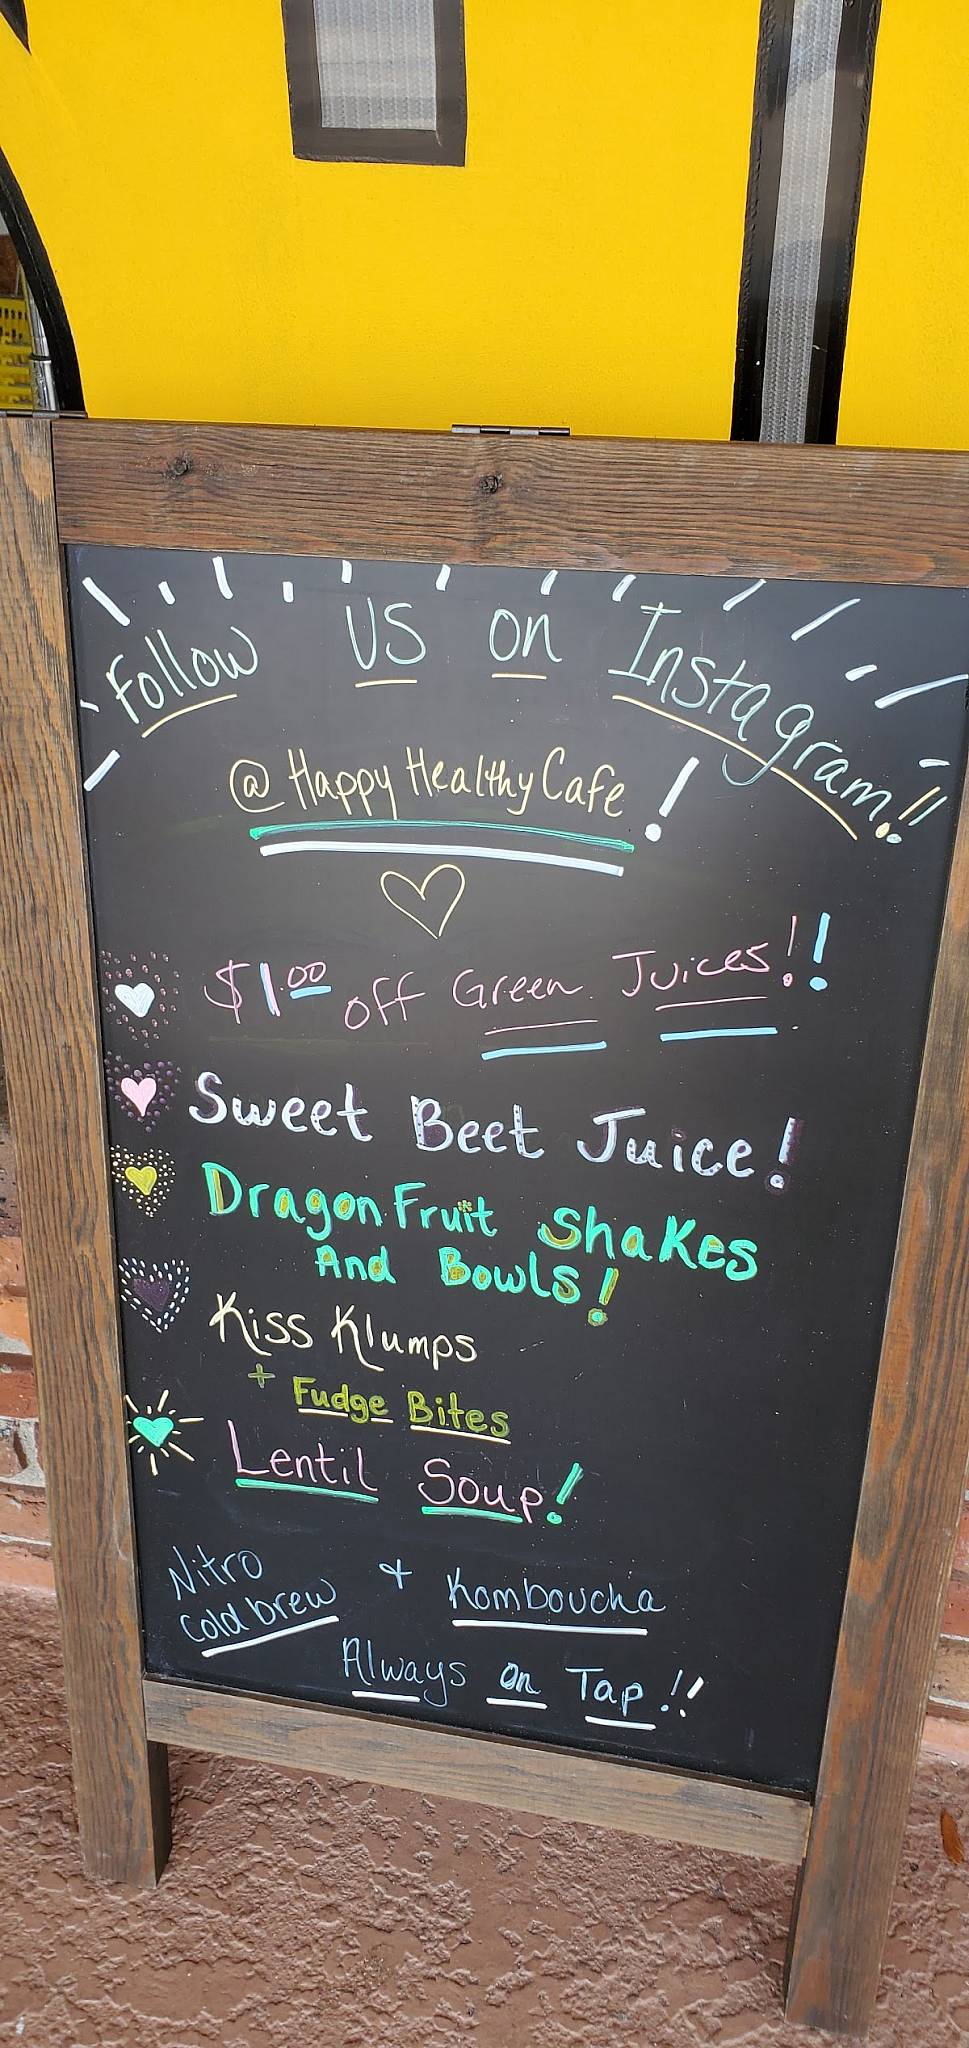 Follow US on Instagram!!
@HappyHealthyCafe!
$1.00 off Green Juices!!
Sweet Beet Juice!
Dragon Fruit Shakes
And Bowls!
Kiss Klumps
+ Fudge Bites
Lentil Soup!
Nitro
cold brew + Komboucha
Always on Tap!!